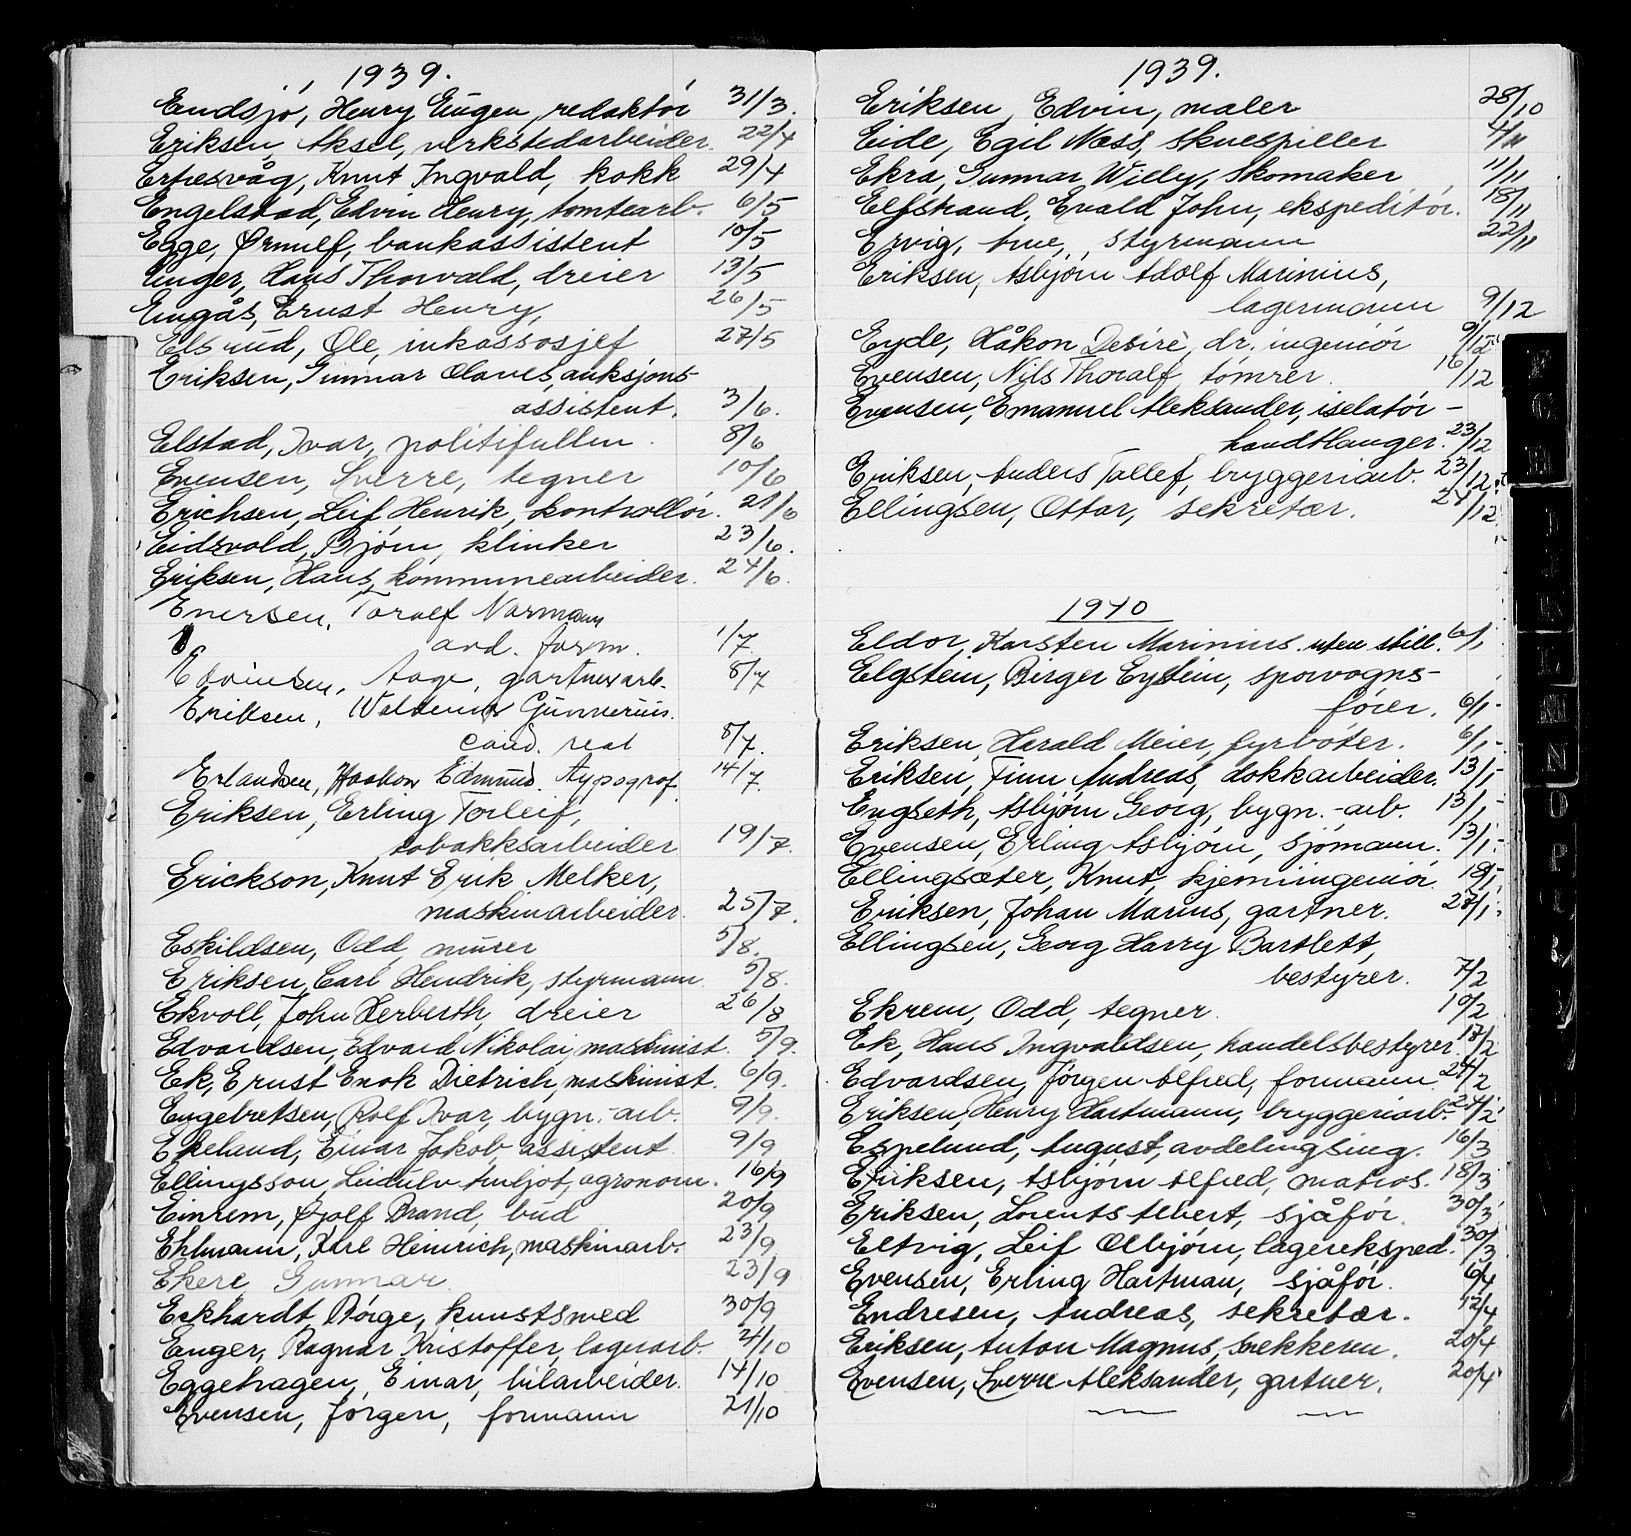 1939.
Endsjø, Henry Eugen, redaktør 31/3.
Eriksen, Aksel, verkstedarbeider. 22/4
Ertresvåg, Knut Ingvald, kokk 29/4
Engelstad, Edvin Henry, tomtearb. 6/5
Ege, Ørnulf, bankassistent 10/5
Unger, Hans Thorvald, dreier 13/5
Engås, Ernst Henry, 26/5
Elsrud, Ole, inkassosjef 27/5
Eriksen, Gunnar Olaves, auksjons-
assistent. 3/6.
Elstad, Ivar, politifullm. 8/6
Evensen, Sverre, tegner 10/6
Erichsen, Leif Henrik, kontrollør. 21/6
Eidsvold, Bjørn, klinker 23/6.
Eriksen, Hans, kommunearbeider. 24/6.
Enersen, Toralf Normann
avd. form. 1/7.
Edvinsen, Aage, gartnerarb. 8/7
Eriksen, Waldemar Gunnerius.
cand. real 8/7.
Erlandsen, Haakon Edmund. typograf. 14/7.
Eriksen, Erling Torleif,
tobakksarbeider 19/7.
Erickson, Knut Erik Melker,
maskinarbeider. 25/7.
Eskildsen, Odd, murer 5/8.
Eriksen, Carl Hendrik, styrmann 5/8.
Ekvoll, John Herberth, dreier 26/8
Edvardsen, Edvard Nikolai, maskinist. 5/9.
Ek, Ernst Enok Dietrich, maskinist. 6/9.
Engebretsen, Rolf Ivar, bygn.-arb. 9/9.
Ekeland, Einar Jakob, assistent. 9/9
Ellingsson, Leidulv Arnljot, agronom. 16/9
Einrem, Øjolf Brand, bud 20/9
Ehlmann, Karl Heinrich, maskinarb. 23/9
Ekere Gunnar 23/9
Eckhardt, Børge, kunstsmed 30/9
Enger, Ragnar Kristoffer, lagerarb. 2/10
Eggehagen, Einar, bilarbeider. 14/10
Evensen, Jørgen, formann 21/10
1939.
Eriksen, Edvin, maler 28/10
Eide, Egil Næss, skuespiller 4/11
Ekra, Gunnar Willy, skomaker 11/11
Elfstrand, Evald John, ekspeditør. 18/11
Ervig, Arne, styrmann 22/11
Eriksen, Asbjørn Adolf Marinius,
lagermann 9/12
Eyde, Håkon Desirè, dr. ingeniør 9/12
Evensen, Nils Thoralf, tømrer. 16/12
Evensen, Emanuel Aleksander, isolatør-
handtlanger. 23/12
Eriksen, Anders Tollef, bryggeriarb. 23/12.
Ellingsen, Ottar, sekretær. 24/12
1940
Eldor, Karsten Marinius. uten still. 6/1
Elgstein, Birger Eystein, sporvogns-
fører. 6/1
Eriksen, Harald Meier, fyrbøter. 6/1
Eriksen, Finn Andreas, dokkarbeider. 13/1
Engseth, Asbjørn Georg, bygn.-arb. 13/1
Evensen, Erling Asbjørn, sjømann. 13/1
Ellingsæter, Knut, kjemiingeniør. 18/1
Eriksen, Johan Marius, gartner. 27/1
Ellingsen, Georg Harry Bartlett,
bestyrer. 7/2
Ekrem, Odd, tegner. 10/2
Ek, Hans Ingvaldsen, handelsbestyrer. 17/2
Edvardsen, Jørgen Alfred, formann 24/2
Eriksen, Henry Hartmann, bryggeriarb. 24/2
Espelund, August, avdelingsing. 16/3
Eriksen, Asbjørn Alfred, matros. 18/3
Eriksen, Lorents Albert, sjåfør. 30/3
Eltvig, Leif Olbjørn, lagereksped. 30/3
Evensen, Erling Hartman, sjåfør. 6/4
Endresen, Andreas, sekretær. 12/4
Eriksen, Anton Magnus, snekkersv. 20/4
Evensen, Sverre Aleksander, gartner. 20/4
F
G
H
I
J
K
L
M
N
O
P